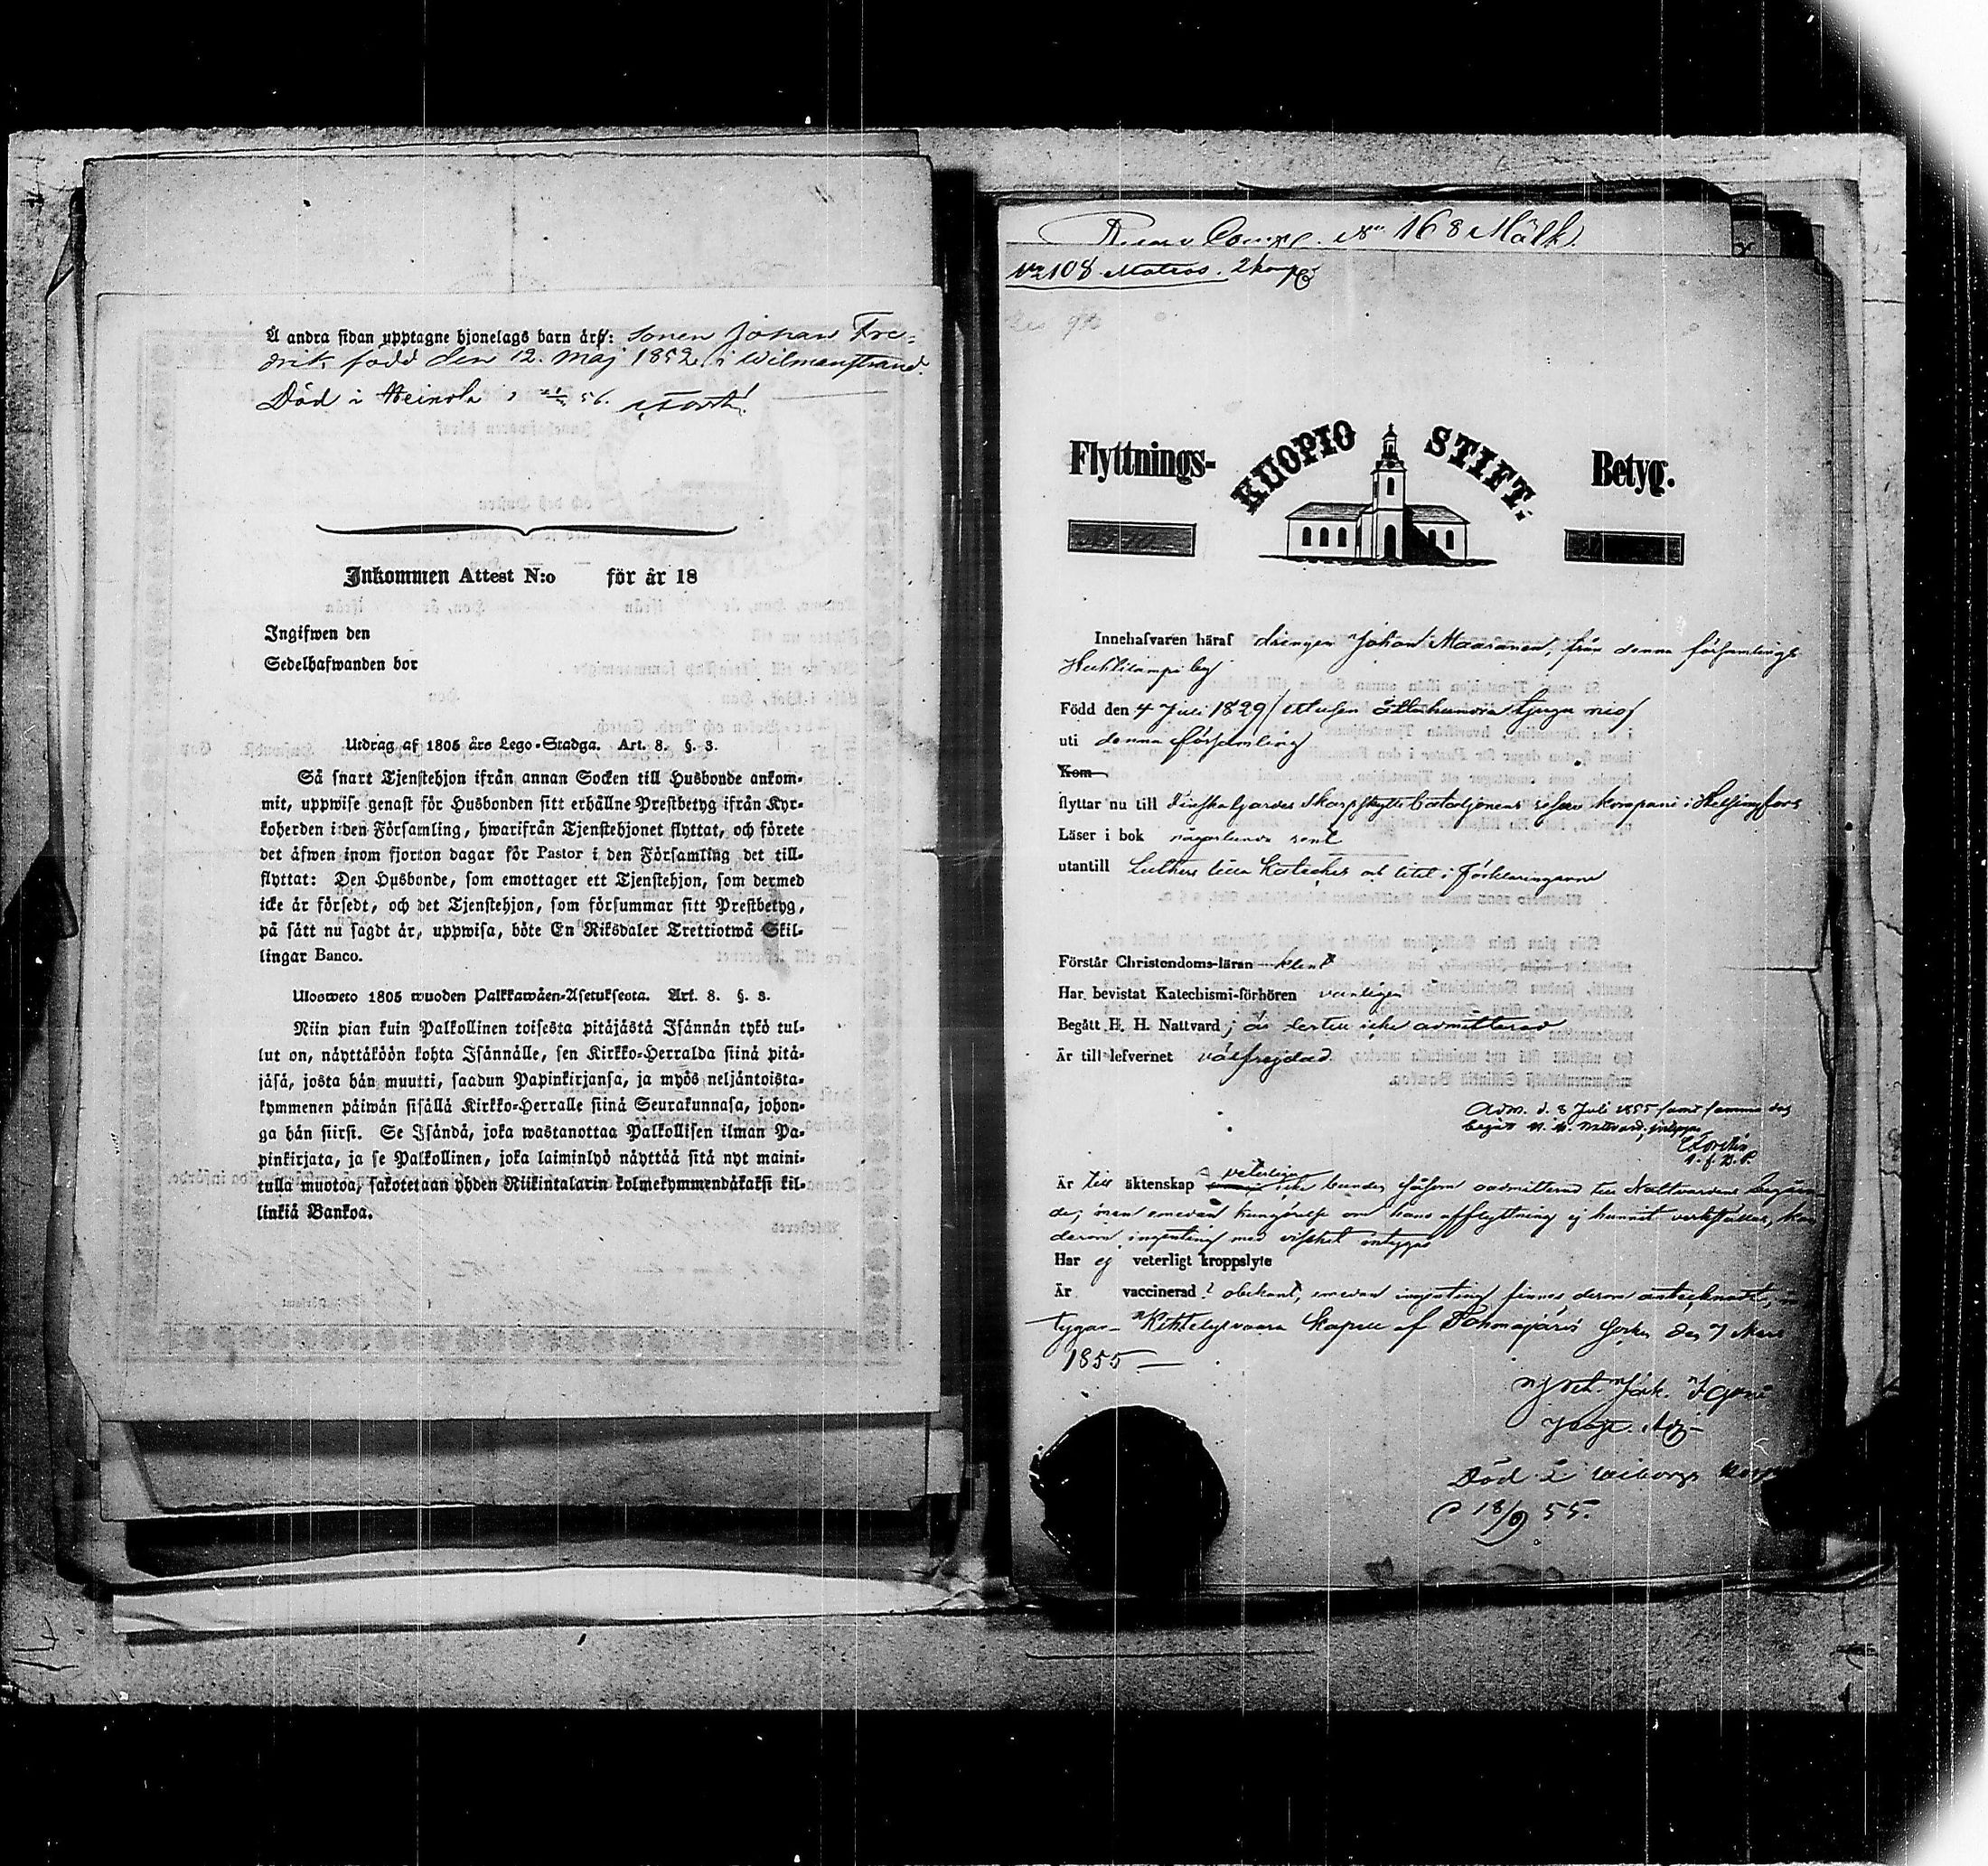 Å andra sidan upptagne hjonelags barn är: sonen Johan Fre-
drik född den 12. Maj 1852 i Wilmanstrand.
Död i Heinola 56.
Inkommen Attest N:o för år 18
Ingifwen den
Sedelhafwanden bor
Utdrag af 1805 års Lego-Stadga. Art. 8. §. 3.
Så snart Tjenstehjon ifrån annan Socken till Husbonde ankom-
mit, uppwise genast för Husbonden sitt erhållne Prestbetyg ifrån Kyr-
koherden i den Församling, hwarifrån Tjenstehjonet flyttat, och förete
det äfwen inom fjorton dagar för Pastor i den Församling det till-
flyttat: Den Husbonde, som emottager ett Tjenstehjon, som dermed
icke är försedt, och det Tjenstehjon, som försummar sitt Prestbetyg,
på sätt nu sagdt är, uppwisa, böte En Riksdaler Trettiotwå Skil-
lingar Banco.
Ulosweto 1805 wuoden Palkkawäen-Asetuksesta. Art. 8. §. 3.
Niin pian kuin Palkollinen toisesta pitäjästä Isännän tykö tul-
lut on, näyttäköön kohta Isännälle, sen Kirkko-Herralda siinä pitä-
jäsä, josta hän muutti, saadun Papinkirjansa, ja myös neljäntoista-
kymmenen päiwän sisällä Kirkko-Herralle siinä Seurakunnasa, johon-
ga hän siirsi. Se Isändä, joka wastanottaa Palkollisen ilman Pa-
pinkirjata, ja se Palkollinen, joka laiminlyö näyttää sitä nyt maini-
tulla muotoa, sakotetaan yhden Riikintalarin kolmekymmendäkaksi kil-
linkiä Bankoa.
Comp. No 168 Mälk.
No 108 Matros. 2 komp
Flyttnings- KUOPIO STIFT. Betyg.
Innehafvaren häraf drengen Johan Maaranen, från denna församlings
by
Född den 4 Juli 1829 / ettusen åttahundra tjugu nio /
uti denna församling
Kom
flyttar nu till Finska Gardes Skarpskytte bataljonens reserv kompani i Helsingfors
Läser i bok någorlunda rent
utantill Luthers lilla Kateches och litet i förklaringarne
Förstår Christendoms-läran klent
Har bevistat Katechismi-förhören vanligen
Begått H. H. Nattvard; är dertill icke admitterad
Är till lefvernet välfrejdad
Adm. d. 8 Juli 1855 samt samma dag
begått H. H. Nattvard, intygar
Är till äktenskap veterligen icke bunden såsom oadmitterad till Nattvardens begåen-
de; men emedan kungörelse om hans afflyttning ej hunnit verkställas, kan
derom ingenting med visshet intygas
Har ej veterligt kroppslyte
Är vaccinerad? obekant, emedan ingenting finnes derom antecknadt, in-
tygas Kiihtelysvaara Kapell af Tohmajärvi Socken den 7 Mars
1855
Död i Wiborg
d 18/9 55.